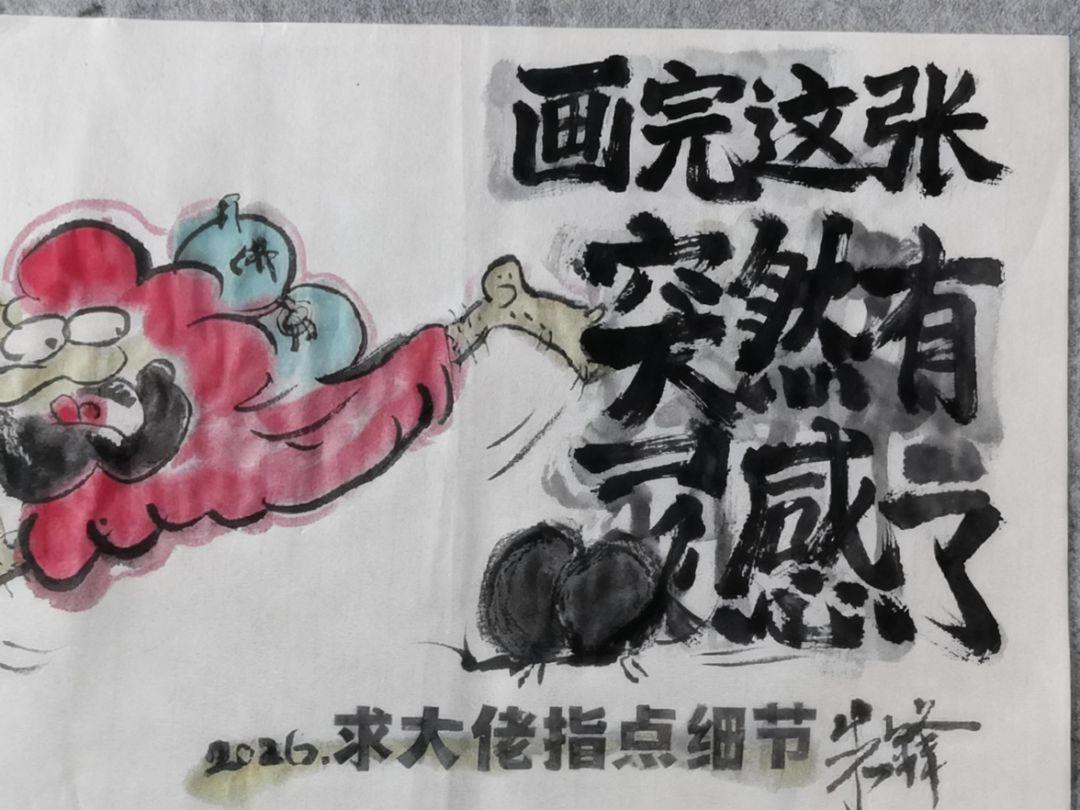 画完这张
突然有
灵感了
2026.求大佬指点细节